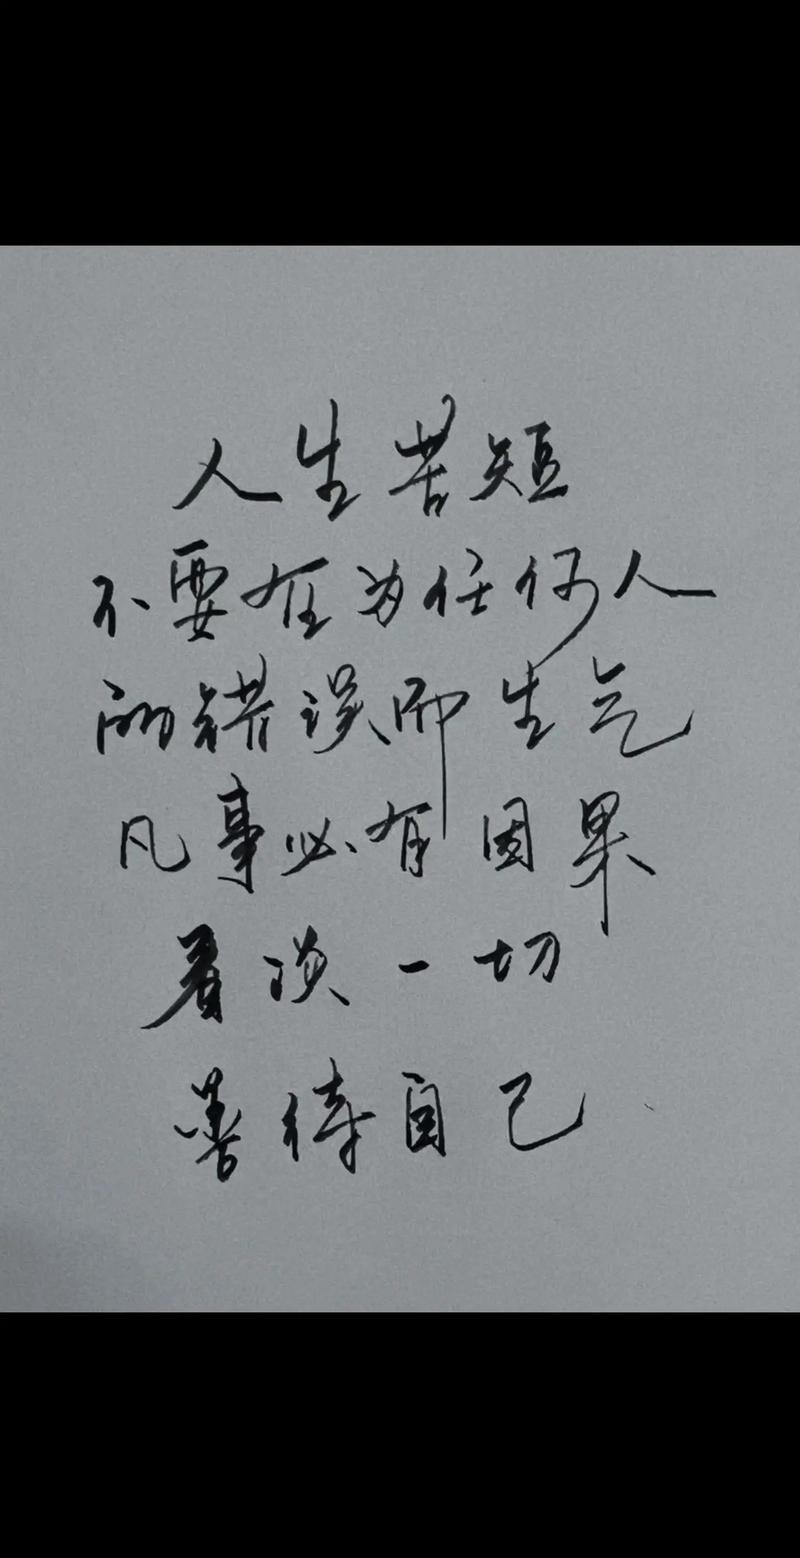 人生苦短
不要在为任何人
的错误而生气
凡事必有因果
看淡一切
善待自己